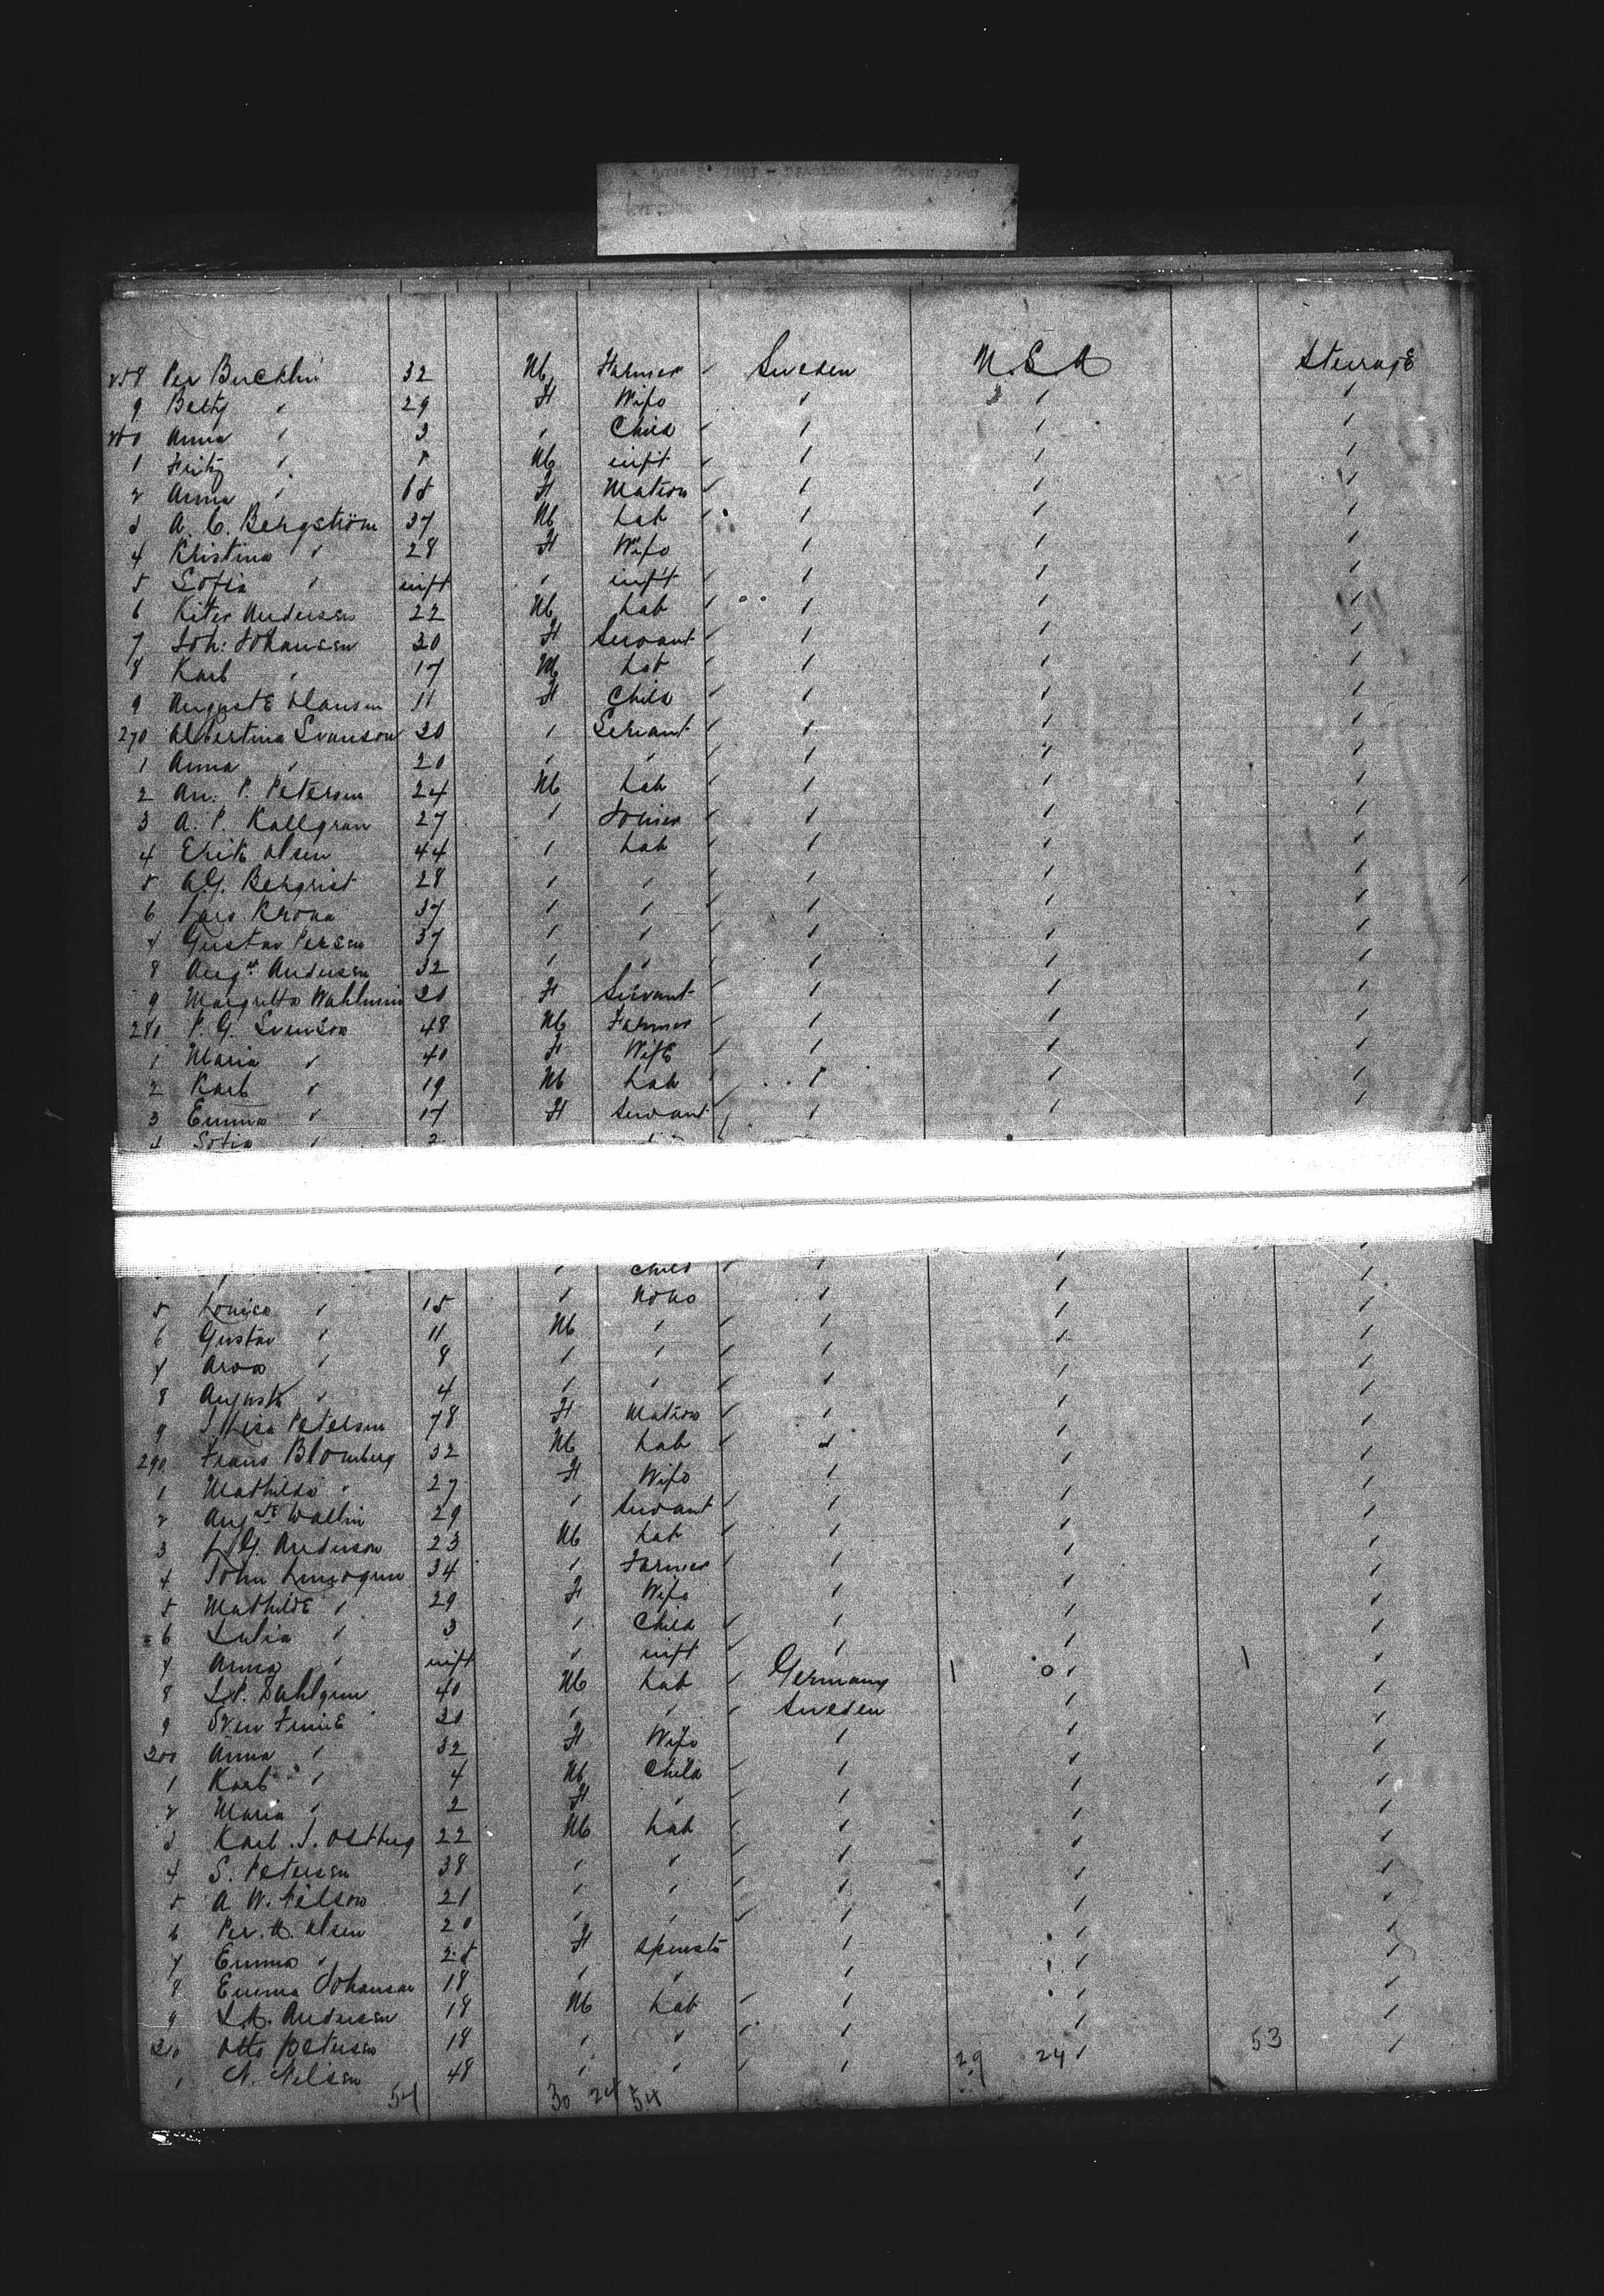 258 Per Bucklin 32 M Farmer Sweden U.S.A Steerage
9 Betty " 29 F Wife " " "
260 Anna " 3 " Child " " "
1 Fritz " M inft " " "
2 Anna " F Matron " " "
3 A. C. Bergström 37 M Lab " " "
4 Kristina " 28 F Wife " " "
5 Sofia " inft " inft " " "
6 Andersen 22 M Lab " " "
7 Joh: Johansen 20 F Servant " " "
8 Karl " 17 M Lab " " "
9 Auguste Hansen 11 F Child " " "
270 Albertina Svanson 20 " Servant " " "
1 Anna " 20 " " " " "
2 An. P. Petersen 24 M Lab " " "
3 A. P. Kallgran 27 " Joiner " " "
4 Erik Olsen 44 " Lab " " "
5 A.G. Bergrist 28 " " " " "
6 Lars Krona 37 " " " " "
7 Gustav Persen 37 " " " " "
8 Augst Andersen 32 " " " " "
9 Margretta 20 F Servant " " "
280 P. G. Svenson 48 M Farmer " " "
1 Maria " 40 F Wife " " "
2 Karl " 19 M Lab " " "
3 Emma " 17 F Servant " " "
4 Sofia "
" Child " " "
5 Lovisa " 15 " None " " "
6 Gustav " 11 M " " " "
7 " 8 " " " " "
8 August " 4 " " " " "
9 Lisa Petersen 78 F Matron " " "
290 Frans Blomberg 32 M Lab " " "
1 Mathilda " 27 F Wife " " "
2 Augste Wallin 29 " Servant " " "
3 L.G. Anderson 23 M Lab " " "
4 John 34 " Farmer " " "
5 Mathilde " 29 F Wife " " "
6 Julia " 3 " Child " " "
7 Anna " inft " inft " " "
8 Dahlgren 40 M Lab Germany 1 0 " 1 "
9 Sven 30 " " Sweden " "
300 Anna " 32 F Wife " " "
1 Karl " 4 M Child " " "
2 Maria " 2 F " " " "
3 Karl J. Ostberg 22 M Lab " " "
4 S. Petersen 38 " " " " "
5 A. W. Nelson 21 " " " " "
6 Per. Olsen 20 " " " " "
7 Emma " F Spinstr " " "
8 Emma Johansen 18 " " " " "
9 Andersen 18 M Lab " " "
310 Otto Petersen 18 " " " " "
1 N. Nelsen 48 " " " 29 24 " 53 "
54 30 24 54